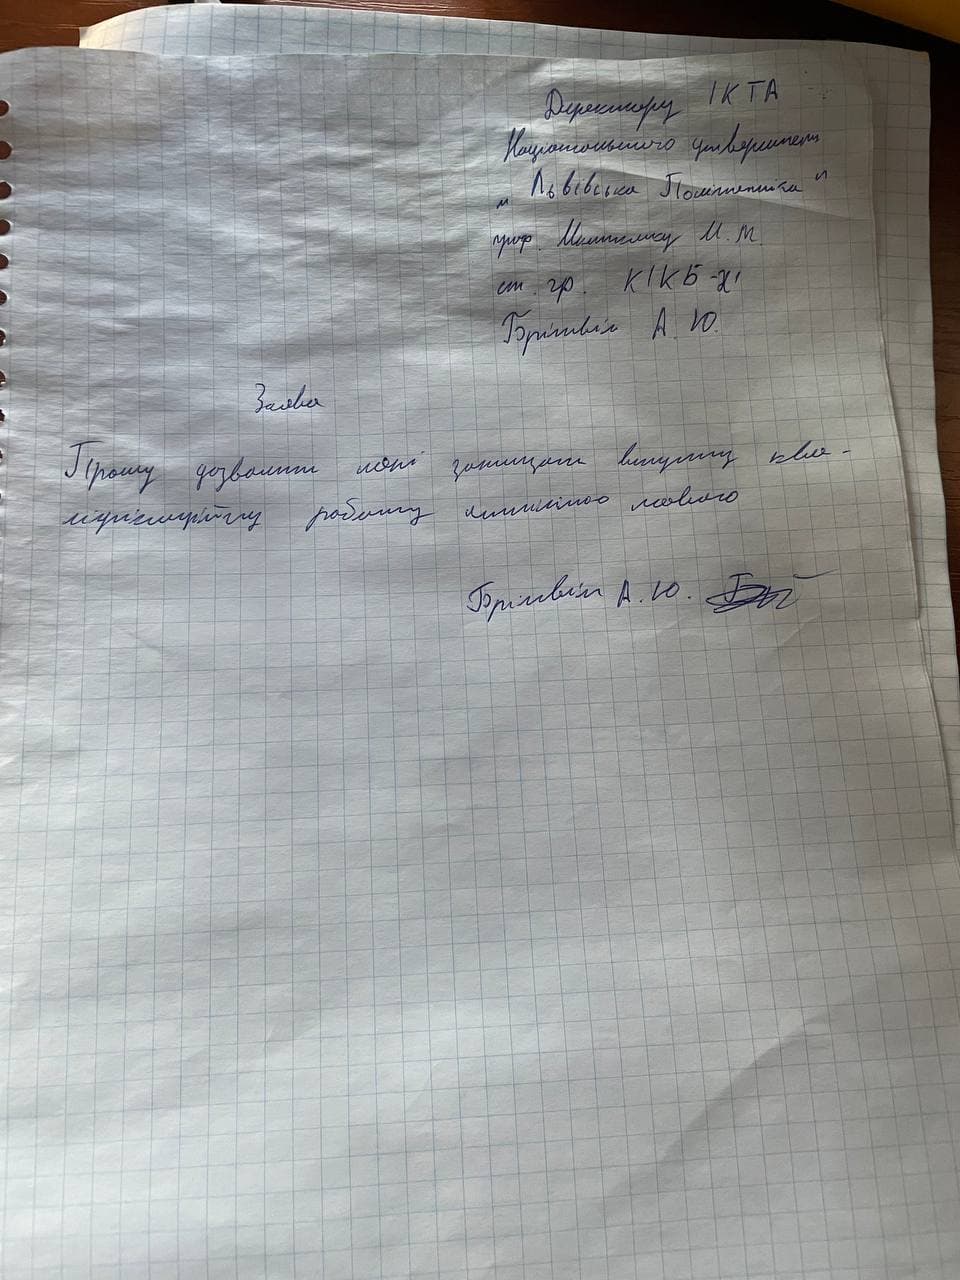 Директору ІКТА
Національного університету
"Львівська Політехніка"
проф. Микитиму М. М.
ст. гр. КІКБ-21
Брітвін А. Ю.
Заява
Прошу дозволити мені захищати випускну ква-
ліфікаційну работу мовою
Брітвін А. Ю.